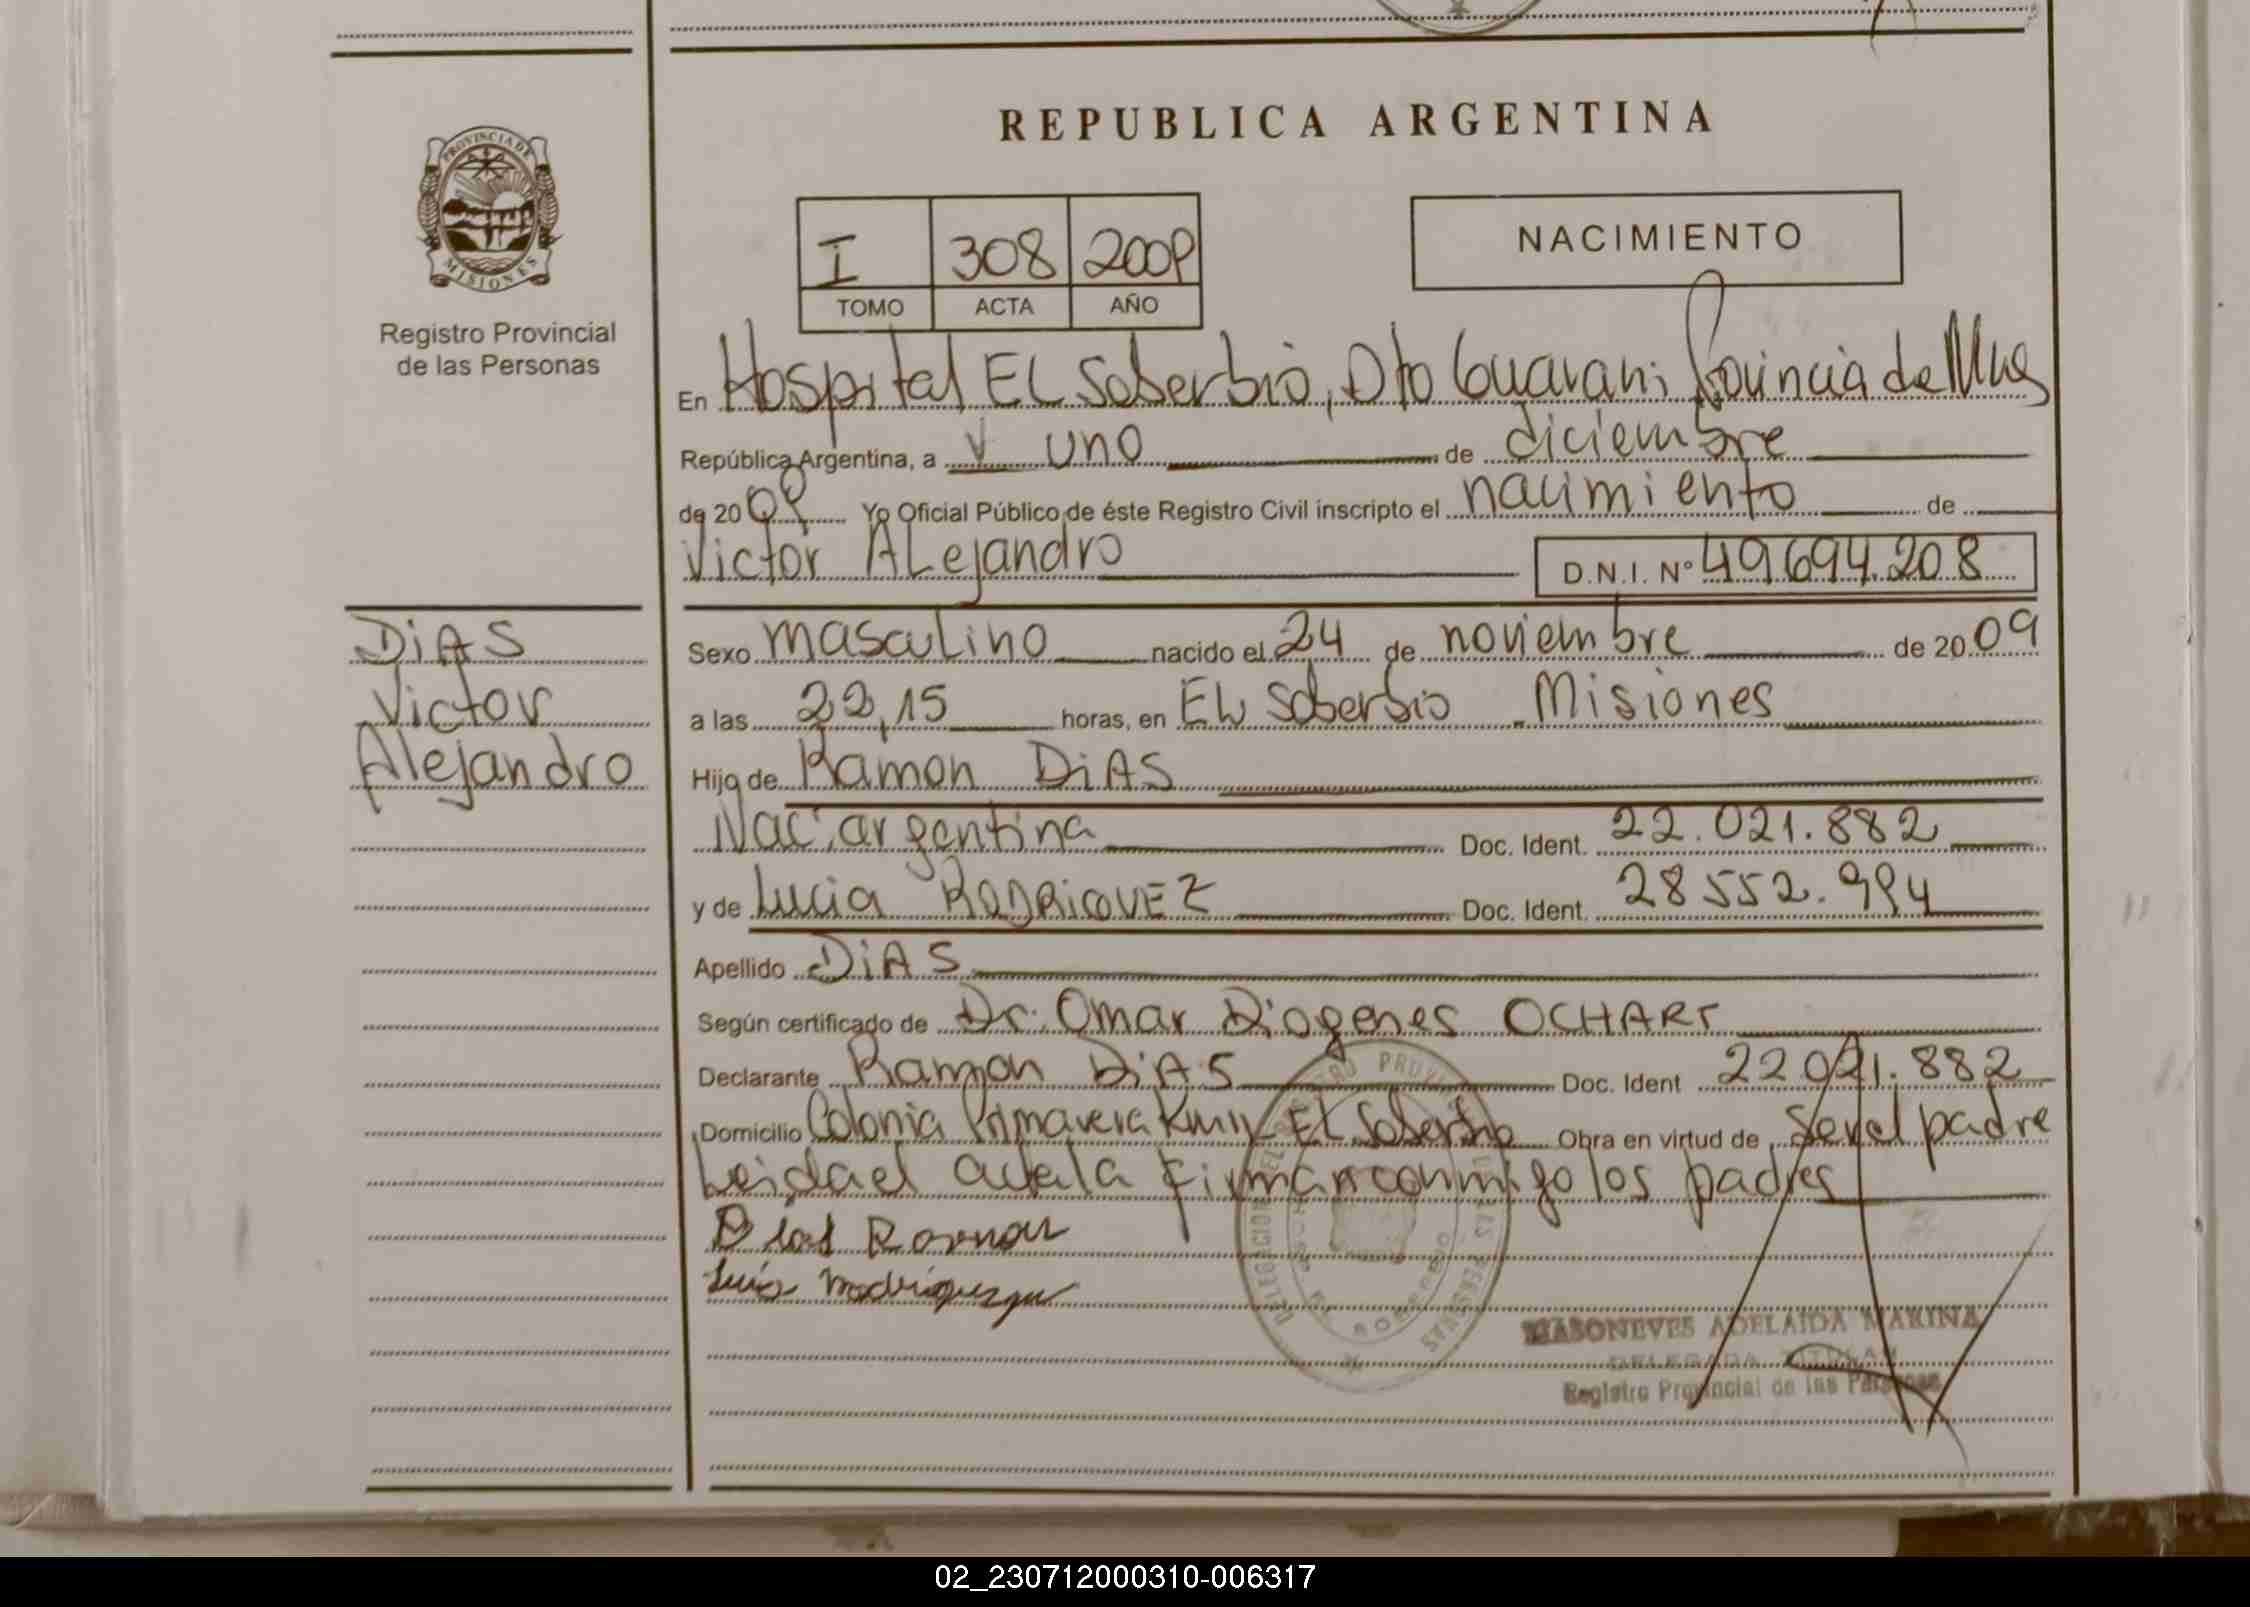 REPUBLICA ARGENTINA
PROVINCIA DE
MISIONES
Registro Provincial
de las Personas
I 308 2009
TOMO ACTA AÑO
NACIMIENTO
En Hospital EL Soberbio, Dto Guarani Provincia de Mnes
República Argentina, a uno de diciembre
de 2009 Yo Oficial Público de éste Registro Civil inscripto el nacimiento de
Victor ALejandro D.N.I. Nº 49.694.208
DiAS
Victor
Alejandro
Sexo masculino nacido el 24 de noviembre de 2009
a las 22,15 horas, en EL Soberbio Misiones
Hijo de Ramon DiAS
Nac. argentina Doc. Ident. 22.021.882
y de Lucia RODRIGUEZ Doc. Ident. 28552.994
Apellido DiAS
Según certificado de Dr. Omar Diogenes OCHART
Declarante Ramon DiAS Doc. Ident 22021.882
Domicilio Colonia Primavera EL Soberbio Obra en virtud de Ser el padre
Leida el acta la firman conmigo los padres
Dias Ramon
ADELAIDA MARINA
DELEGADA TITULAR
Registro Provincial de las Personas
02_230712000310-006317